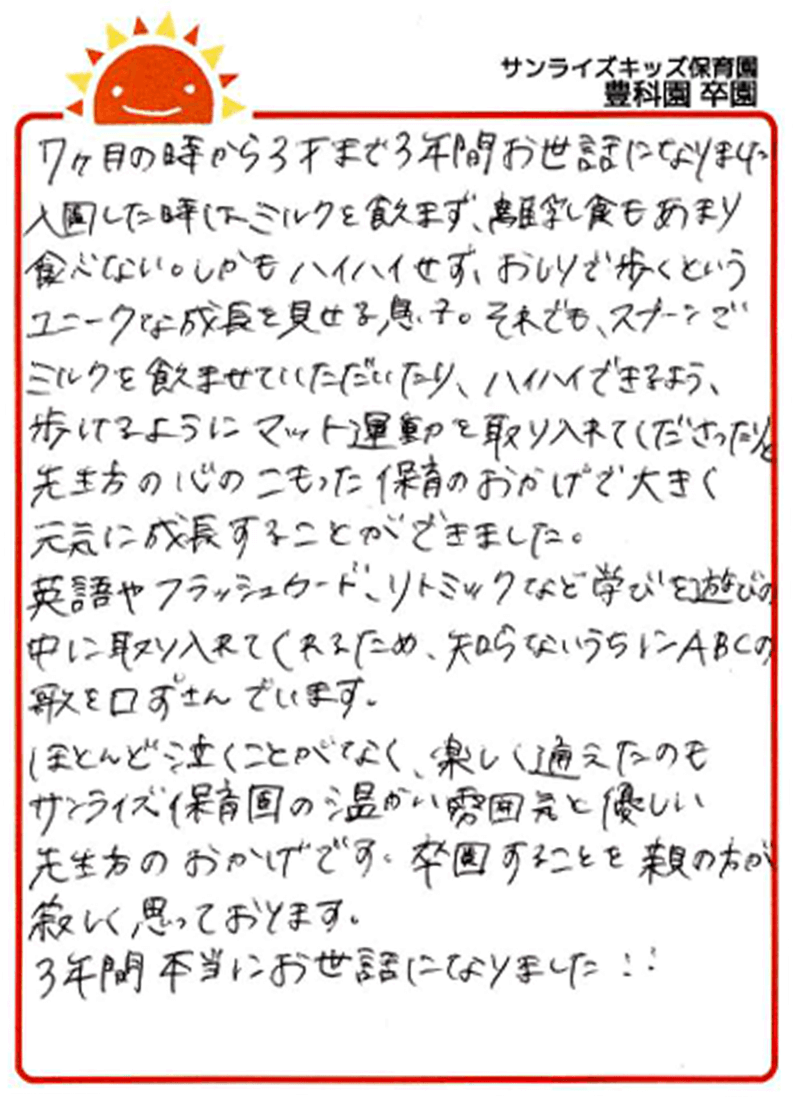 サンライズキッズ保育園
豊科園 卒園
7ヶ月の時から3才まで3年間お世話になりました
入園した時は、ミルクを飲まず、離乳食もあまり
食べない。しかもハイハイせず、おしりで歩くという
ユニークな成長を見せる息子。それでも、スプーンで
ミルクを飲ませていただいたり、ハイハイできるよう、
歩けるようにマット運動を取り入れてくださったりと
先生方の心のこもった保育のおかげで大きく
元気に成長することができました。
英語やフラッシュカード、リトミックなど学びを遊びの
中に取り入れてくれるため、知らないうちにABCの
歌を口ずさんでいます。
ほとんど泣くことがなく、楽しく通えたのも
サンライズ保育園の温かい雰囲気と優しい
先生方のおかげです。卒園することを親の方が
寂しく思っております。
3年間本当にお世話になりました!!